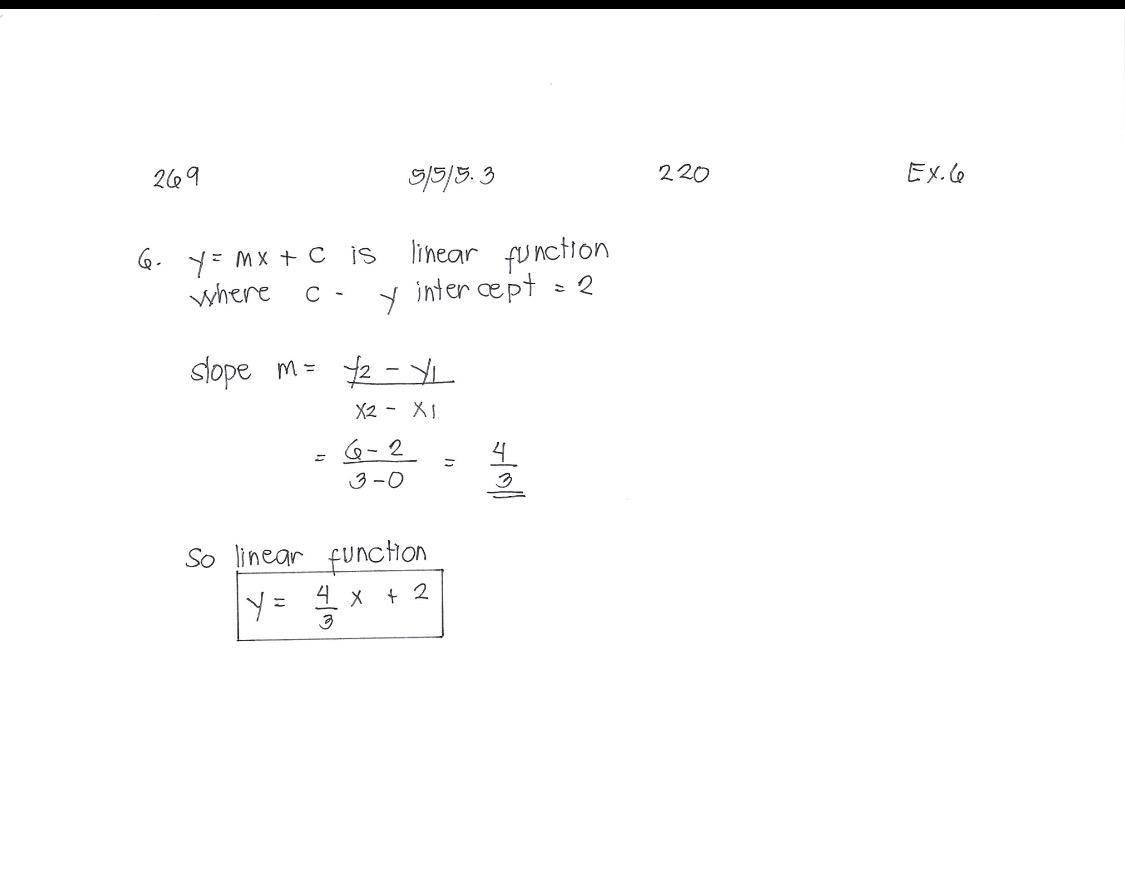 269 5/5/5.3 220 Ex.6
6. y = mx + c is linear function
where c - y intercept = 2
slope m = y2 - y1
x2 - x1
= 6 - 2 = 4
3 - 0 3
So linear function
y = 4 x + 2
3